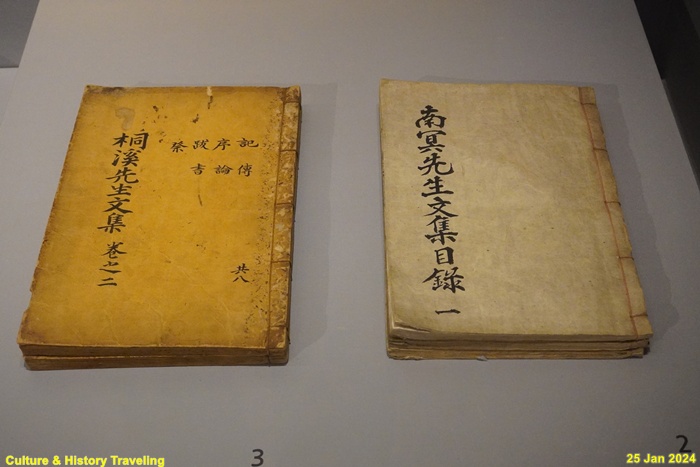 桐溪先生文集 卷之二
記 傳
序 論
跋 吉
祭
共八
南冥先生文集目錄 一
3
2
Culture & History Traveling
25 Jan 2024